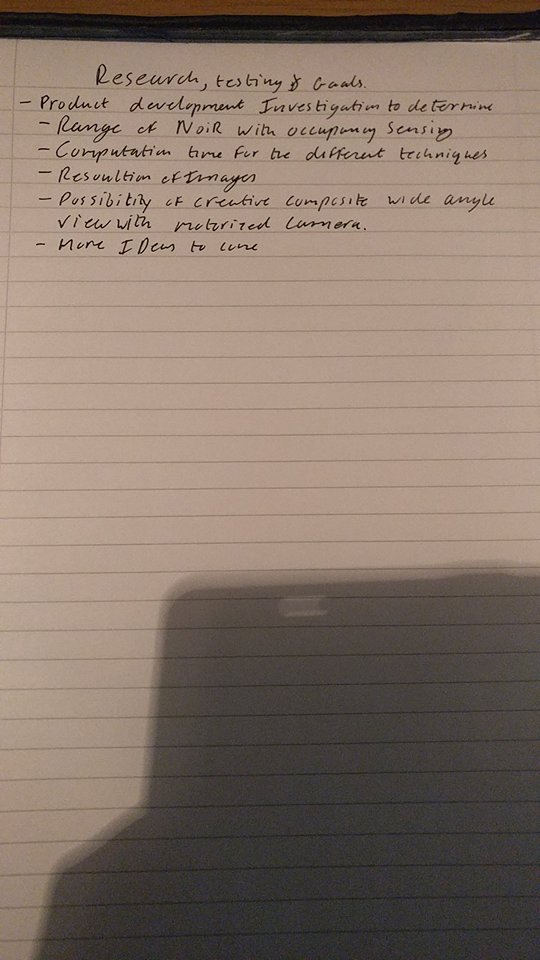 Research, testing & Goals.
- Product development Investigation to determine
- Range of NoiR with occupancy sensing
- Computation time for the different techniques
- Resoultion of Images
- Possibility of creative composite wide angle
view with motorized camera.
- More IDeas to come